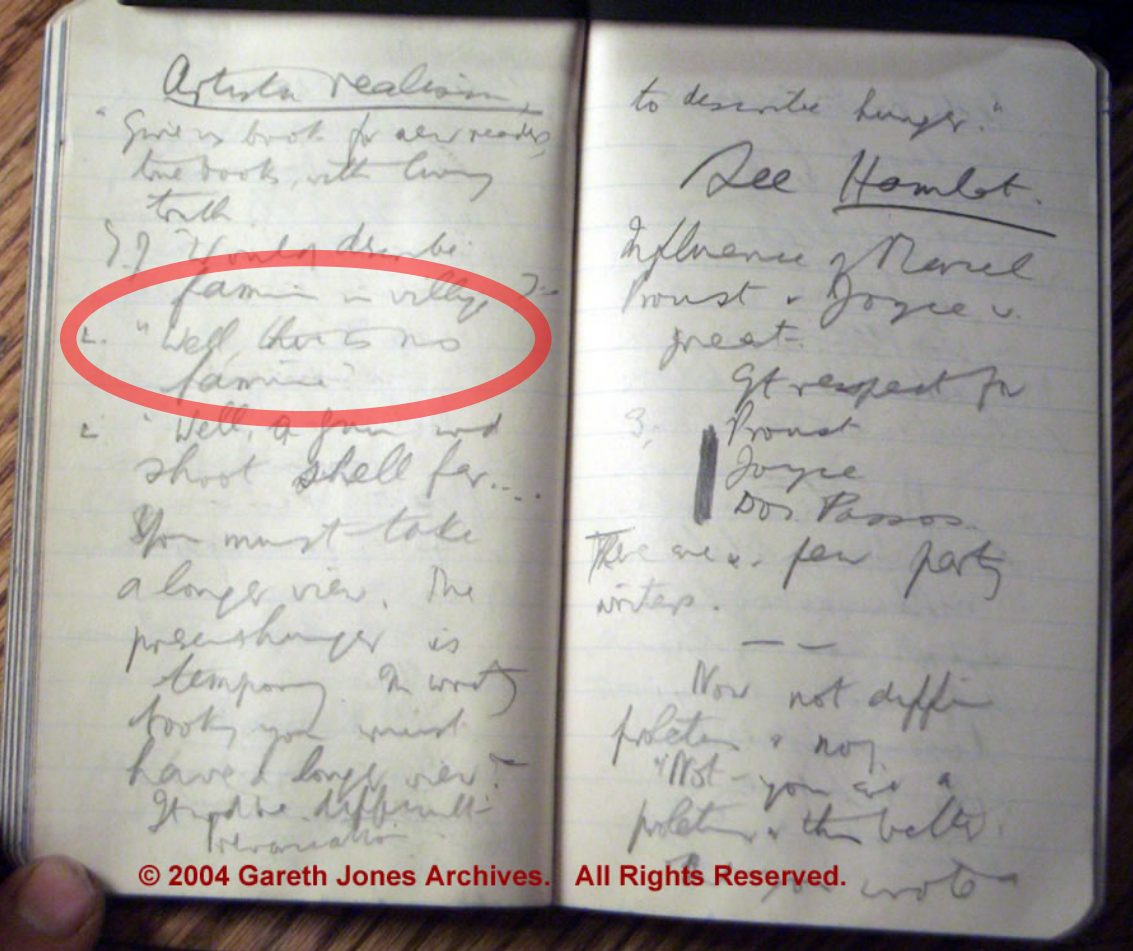 Artistic realism.
"Give us books for new readers,
true books, with living
truth
G.J. Would describe
famine in village?
L. "Well, there is no
famine"
L. "Well, a gun wd
shoot shell far....
You must take
a longer view. The
present hunger is
temporary. In writing
books you must
have a longer view."
It wd be difficult
to describe hunger."
See Hamlet.
Influence of Marcel
Proust & Joyce v.
great.
Gt respect for
Proust
Joyce
Dos Passos.
There are v. few party
writers.
Now not
&
"Not - you are a
& then better.
you wrote
© 2004 Gareth Jones Archives. All Rights Reserved.